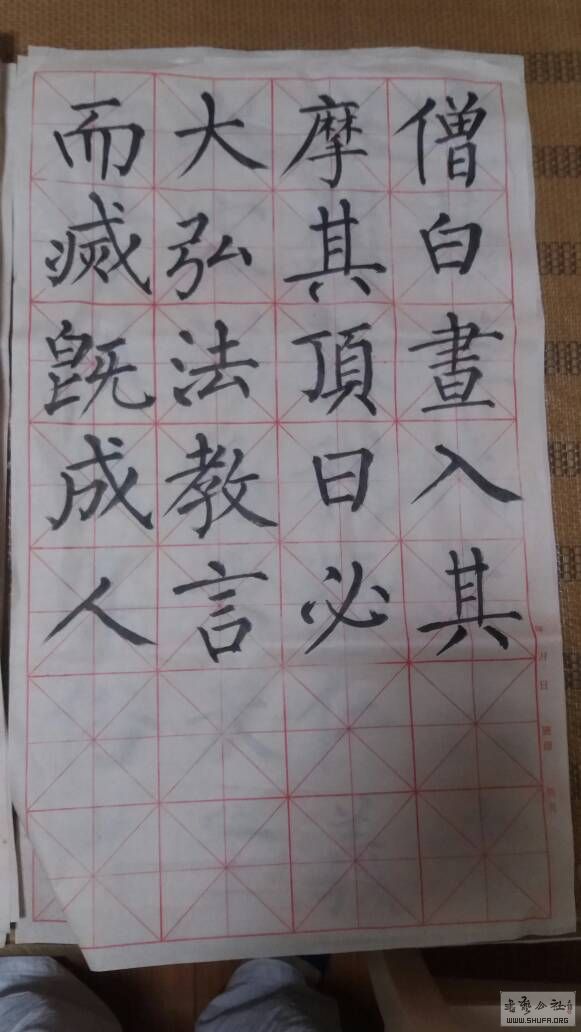 僧白晝入其
摩其頂曰必
大弘法教言
而滅既成人
月日
书艺公社
WWW.SHUFA.ORG